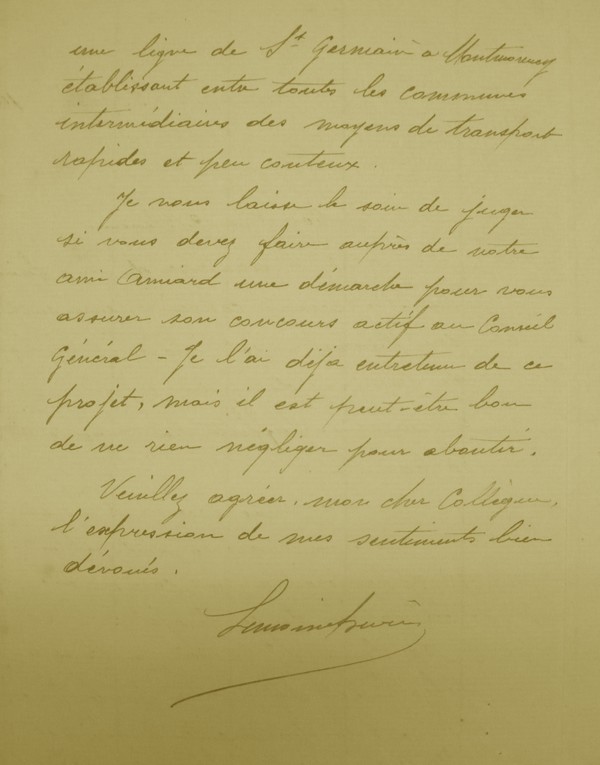 une ligne de St Germain à Montmorency
établissant entre toutes les communes
intermédiaires des moyens de transport
rapides et peu couteux.
Je vous laisse le soin de juger
si vous devez faire auprès de notre
ami Amiard une démarche pour vous
assurer son concours actif au Conseil
Général - Je l'ai déja entretenu de ce
projet, mais il est peut-être bon
de ne rien négliger pour aboutir.
Veuillez agréer, mon cher Collègue,
l'expression de mes sentiments bien
dévoués.